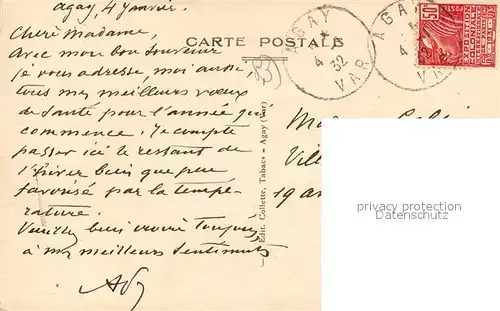 Agay, 4 Janvier.
Chère Madame,
Avec mon bon souvenir
je vous adresse, moi aussi,
tous mes meilleurs vœux
de santé pour l'année qui
commence. Je compte
passer ici le restant de
l'hiver bien que peu
favorisé par la tempé-
rature.
Veuillez bien croire toujours
à mes meilleurs sentiments
CARTE POSTALE
Édit. Collette, Tabacs - Agay (Var)
AGAY
4
32
VAR
AGAY
4
VAR
50c
EXPOSITION
COLONIALE
Vill
19 a
privacy protection
Datenschutz